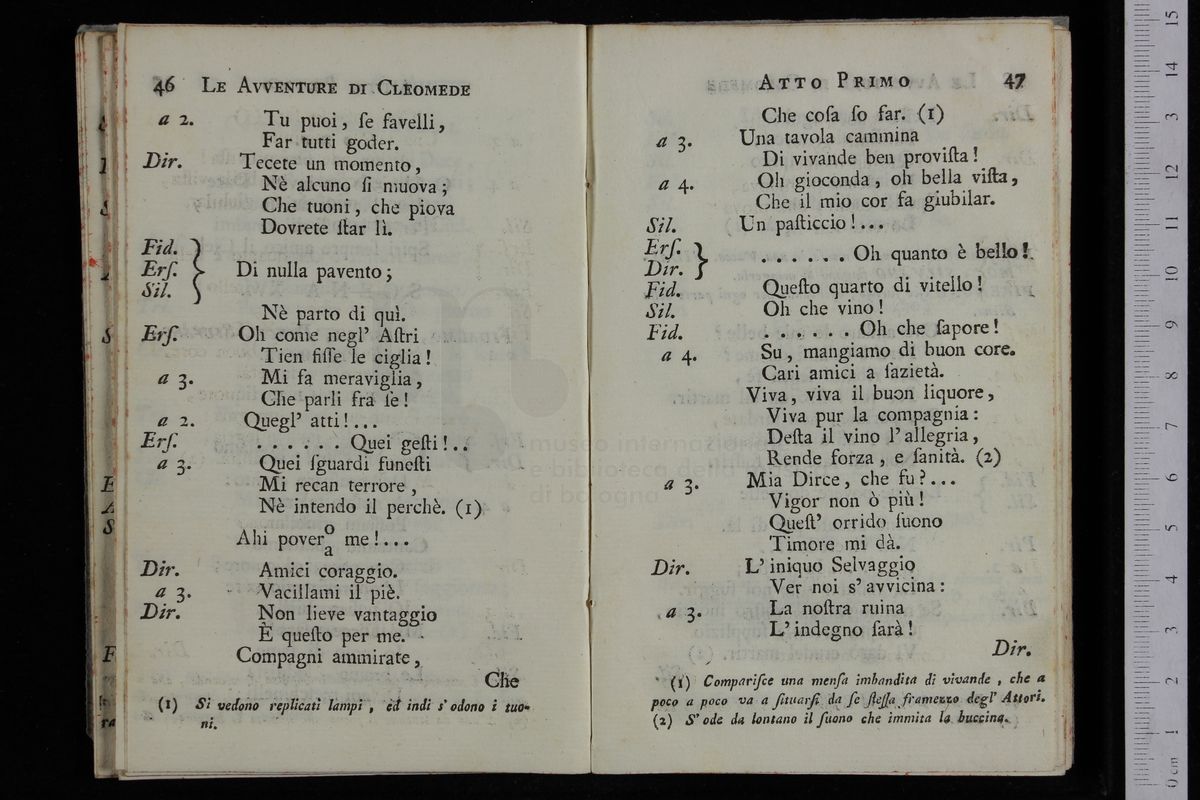 46 LE AVVENTURE DI CLEOMEDE
a 2. Tu puoi, ſe favelli,
Far tutti goder.
Dir. Tecete un momento,
Nè alcuno ſi muova;
Che tuoni, che piova
Dovrete ſtar lì.
Fid.
Erſ. } Di nulla pavento;
Sil.
Nè parto di quì.
Erſ. Oh come negl' Aſtri
Tien fiſſe le ciglia!
a 3. Mi fa meraviglia,
Che parli fra ſe!
a 2. Quegl' atti!...
Erſ. . . . . . . Quei geſti!..
a 3. Quei ſguardi funeſti
Mi recan terrore,
Nè intendo il perchè. (1)
Ahi pover o/a me!...
Dir. Amici coraggio.
a 3. Vacillami il piè.
Dir. Non lieve vantaggio
È queſto per me.
Compagni ammirate,
Che
(1) Si vedono replicati lampi, ed indi s' odono i tuo-
ni.
ATTO PRIMO 47
Che coſa ſo far. (1)
a 3. Una tavola cammina
Di vivande ben proviſta!
a 4. Oh gioconda, oh bella viſta,
Che il mio cor fa giubilar.
Sil. Un paſticcio!...
Erſ. } . . . . . . Oh quanto è bello!
Dir.
Fid. Queſto quarto di vitello!
Sil. Oh che vino!
Fid. . . . . . . Oh che ſapore!
a 4. Su, mangiamo di buon core.
Cari amici a ſazietà.
Viva, viva il buon liquore,
Viva pur la compagnia:
Deſta il vino l'allegria,
Rende forza, e ſanità. (2)
a 3. Mia Dirce, che fu?...
Vigor non ò più!
Queſt' orrido ſuono
Timore mi dà.
Dir. L' iniquo Selvaggio
Ver noi s' avvicina:
a 3. La noſtra ruina
L' indegno ſarà!
Dir.
(1) Compariſce una menſa imbandita di vivande, che a
poco a poco va a ſituarſi da ſe ſteſſa framezzo degl' Attori.
(2) S' ode da lontano il ſuono che immita la buccina.
museo internazionale
e biblioteca della
di bologna
15
14
13
12
11
10
9
8
7
6
5
4
3
2
1
0 cm